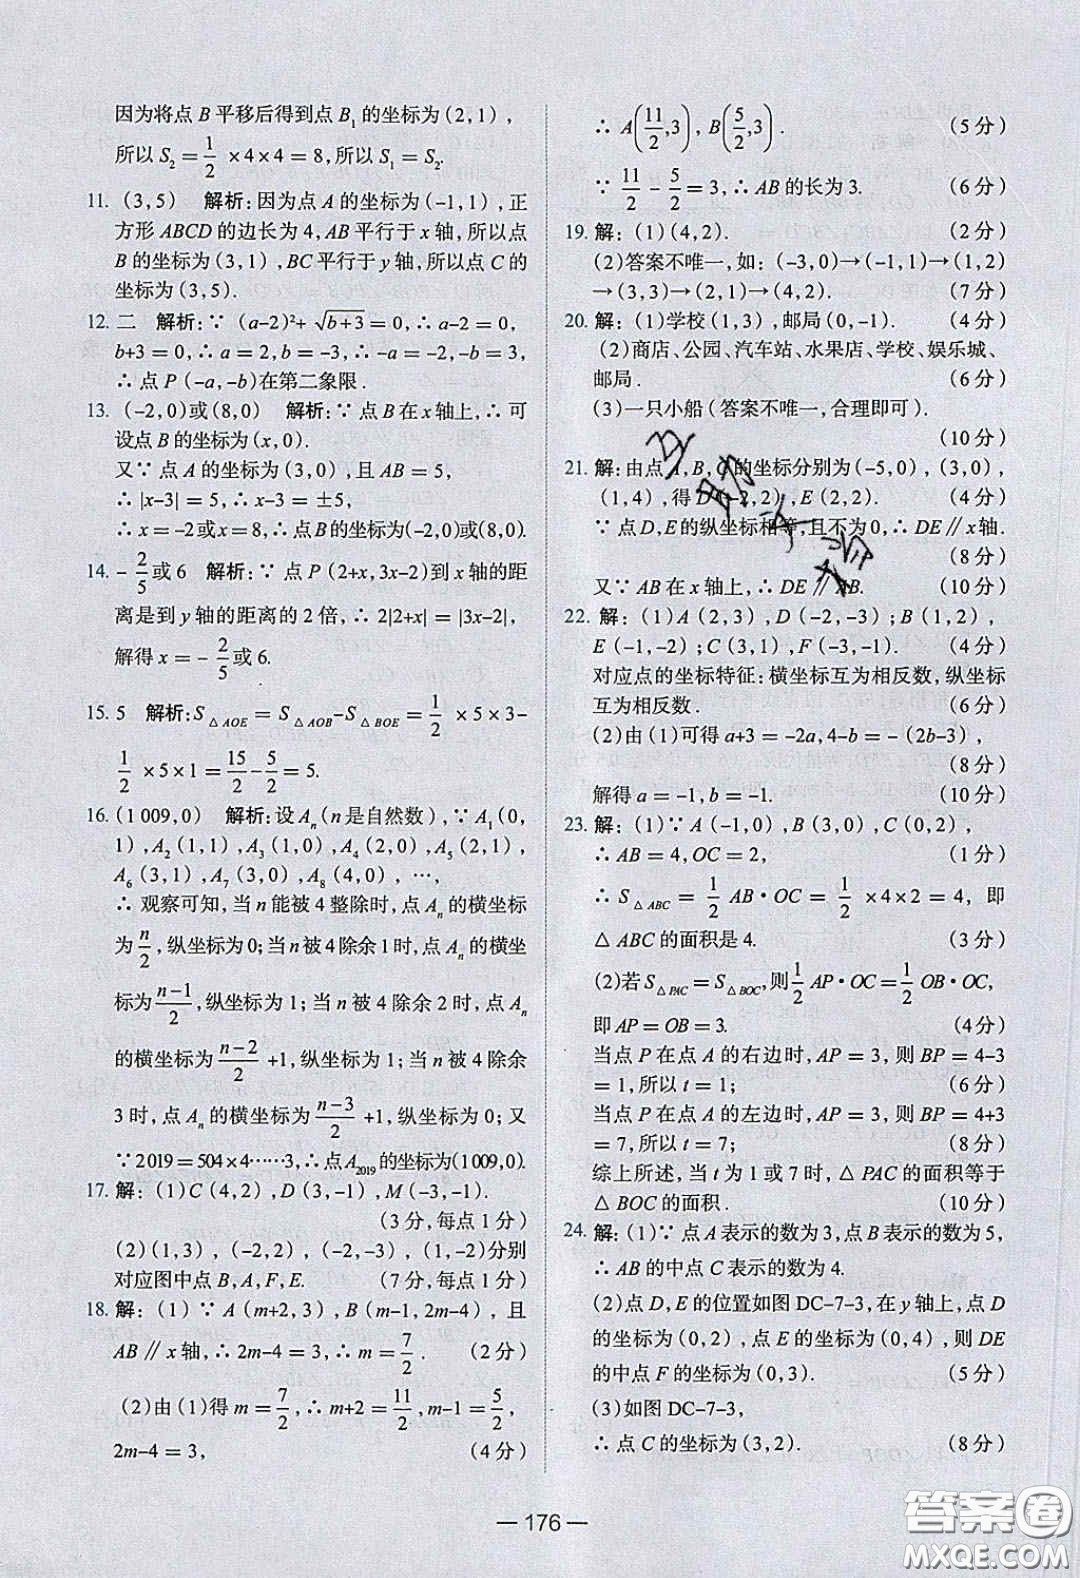 因为将点 B 平移后得到点 B₁ 的坐标为(2,1),
所以 S₂ = 1/2 ×4×4 = 8,所以 S₁ = S₂.
11. (3,5)　解析:因为点 A 的坐标为(-1,1),正
方形 ABCD 的边长为 4,AB 平行于 x 轴,所以点
B 的坐标为(3,1),BC 平行于 y 轴,所以点 C 的
坐标为(3,5).
12. 二　解析:∵ (a-2)²+ √(b+3) = 0,∴ a-2 = 0,
b+3 = 0,∴ a = 2,b = -3,∴ -a = -2,-b = 3,
∴ 点 P (-a,-b)在第二象限.
13. (-2,0)或(8,0)　解析:∵ 点 B 在 x 轴上,∴ 可
设点 B 的坐标为(x,0).
又∵ 点 A 的坐标为(3,0),且 AB = 5,
∴ |x-3| = 5,∴ x-3 = ±5,
∴ x = -2或x = 8,∴ 点B的坐标为(-2,0)或(8,0).
14. - 2/5 或 6　解析:∵ 点 P (2+x,3x-2)到 x 轴的距
离是到 y 轴的距离的 2 倍,∴ 2|2+x| = |3x-2|,
解得 x = - 2/5 或 6.
15. 5　解析:S△AOE = S△AOB-S△BOE = 1/2 ×5×3-
1/2 ×5×1 = 15/2 - 5/2 = 5.
16. (1 009,0)　解析:设 Aₙ(n 是自然数),∵ A₁(0,
1),A₂(1,1),A₃(1,0),A₄(2,0),A₅(2,1),
A₆(3,1),A₇(3,0),A₈(4,0),…,
∴ 观察可知,当 n 能被 4 整除时,点 Aₙ 的横坐标
为 n/2,纵坐标为 0;当 n 被 4 除余 1 时,点 Aₙ 的横坐
标为 (n-1)/2,纵坐标为 1;当 n 被 4 除余 2 时,点 Aₙ
的横坐标为 (n-2)/2 +1,纵坐标为 1;当 n 被 4 除余
3 时,点 Aₙ 的横坐标为 (n-3)/2 +1,纵坐标为 0;又
∵ 2019 = 504×4……3,∴ 点A₂₀₁₉ 的坐标为(1 009,0).
17. 解:(1)C(4,2),D(3,-1),M(-3,-1).
(3分,每点1分)
(2)(1,3),(-2,0),(-2,-3),(1,-2)分别
对应图中点 B,A,F,E.　(7分,每点1分)
18. 解:(1)∵ A(m+2,3),B(m-1,2m-4),且
AB∥x 轴,∴ 2m-4 = 3,∴ m = 7/2.　(2分)
(2)由(1)得 m = 7/2,∴ m+2 = 11/2,m-1 = 5/2,
2m-4 = 3,　(4分)
∴ A(11/2,3),B(5/2,3).　(5分)
∵ 11/2 - 5/2 = 3,∴ AB 的长为 3.　(6分)
19. 解:(1)(4,2).　(2分)
(2)答案不唯一,如:(-3,0)→(-1,0)→(1,2)
→(3,3)→(2,1)→(4,2).　(7分)
20. 解:(1)学校(1,3),邮局(0,-1).　(4分)
(2)商店、公园、汽车站、水果店、学校、娱乐城、
邮局.　(6分)
(3)一只小船(答案不唯一,合理即可).
(10分)
21. 解:由点 A,B,C 的坐标分别为(-5,0),(3,0),
(1,4),得 D(-2,2),E(2,2).　(4分)
∵ 点D,E的纵坐标相等,且不为0,∴ DE∥x轴.
(8分)
又∵ AB 在 x 轴上,∴ DE∥AB.　(10分)
22. 解:(1)A(2,3),D(-2,-3);B(1,2),
E(-1,-2);C(3,1),F(-3,-1).　(4分)
对应点的坐标特征:横坐标互为相反数,纵坐标
互为相反数.　(6分)
(2)由(1)可得 a+3 = -2a,4-b = -(2b-3),
(8分)
解得 a = -1,b = -1.　(10分)
23. 解:(1)∵ A(-1,0),B(3,0),C(0,2),
∴ AB = 4,OC = 2,　(1分)
∴ S△ABC = 1/2 AB·OC = 1/2 ×4×2 = 4,即
△ABC 的面积是 4.　(3分)
(2)若 S△PAC = S△BOC,则 1/2 AP·OC = 1/2 OB·OC,
即 AP = OB = 3.　(4分)
当点 P 在点 A 的右边时,AP = 3,则 BP = 4-3
= 1,所以 t = 1;　(6分)
当点 P 在点 A 的左边时,AP = 3,则 BP = 4+3
= 7,所以 t = 7;　(8分)
综上所述,当 t 为 1 或 7 时,△PAC 的面积等于
△BOC 的面积.　(10分)
24. 解:(1)∵ 点 A 表示的数为 3,点 B 表示的数为 5,
∴ AB 的中点 C 表示的数为 4.
(2)点 D,E 的位置如图 DC-7-3,在 y 轴上,点 D
的坐标为(0,2),点 E 的坐标为(0,4),则 DE
的中点 F 的坐标为(0,3).　(5分)
(3)如图 DC-7-3,
∴ 点 C 的坐标为(3,2).　(8分)
— 176 —
答案圈
MXQE.COM